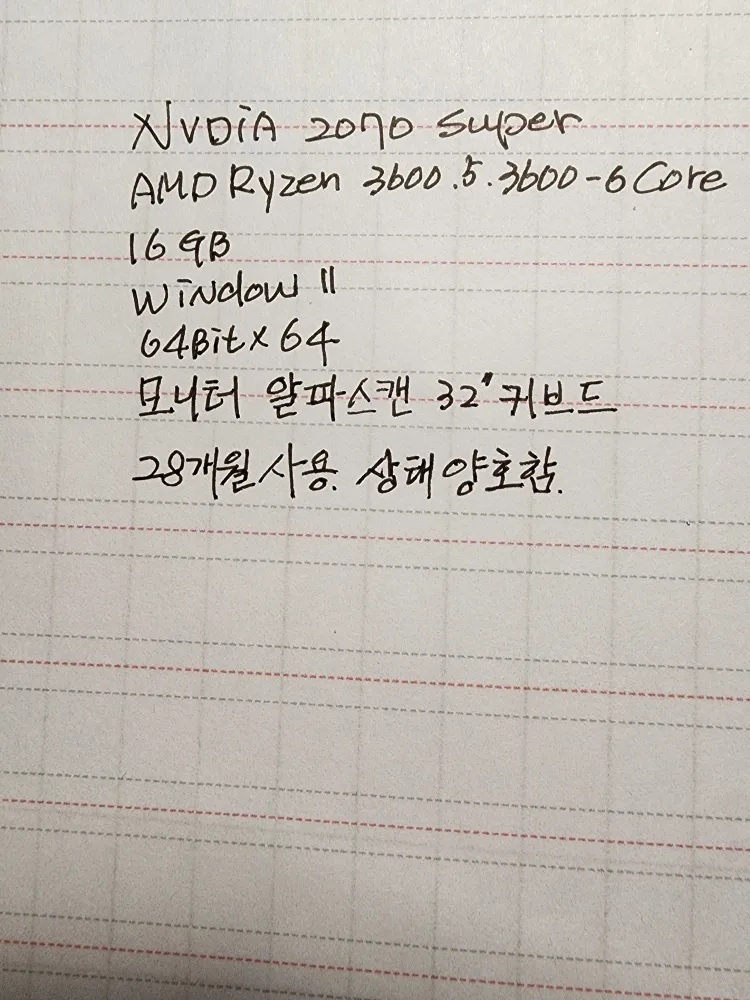 NVDiA 2070 super
AMD Ryzen 3600.5.3600-6 Core
16 GB
Window 11
64Bit x 64
모니터 알파스캔 32" 커브드
28개월 사용. 상태 양호함.